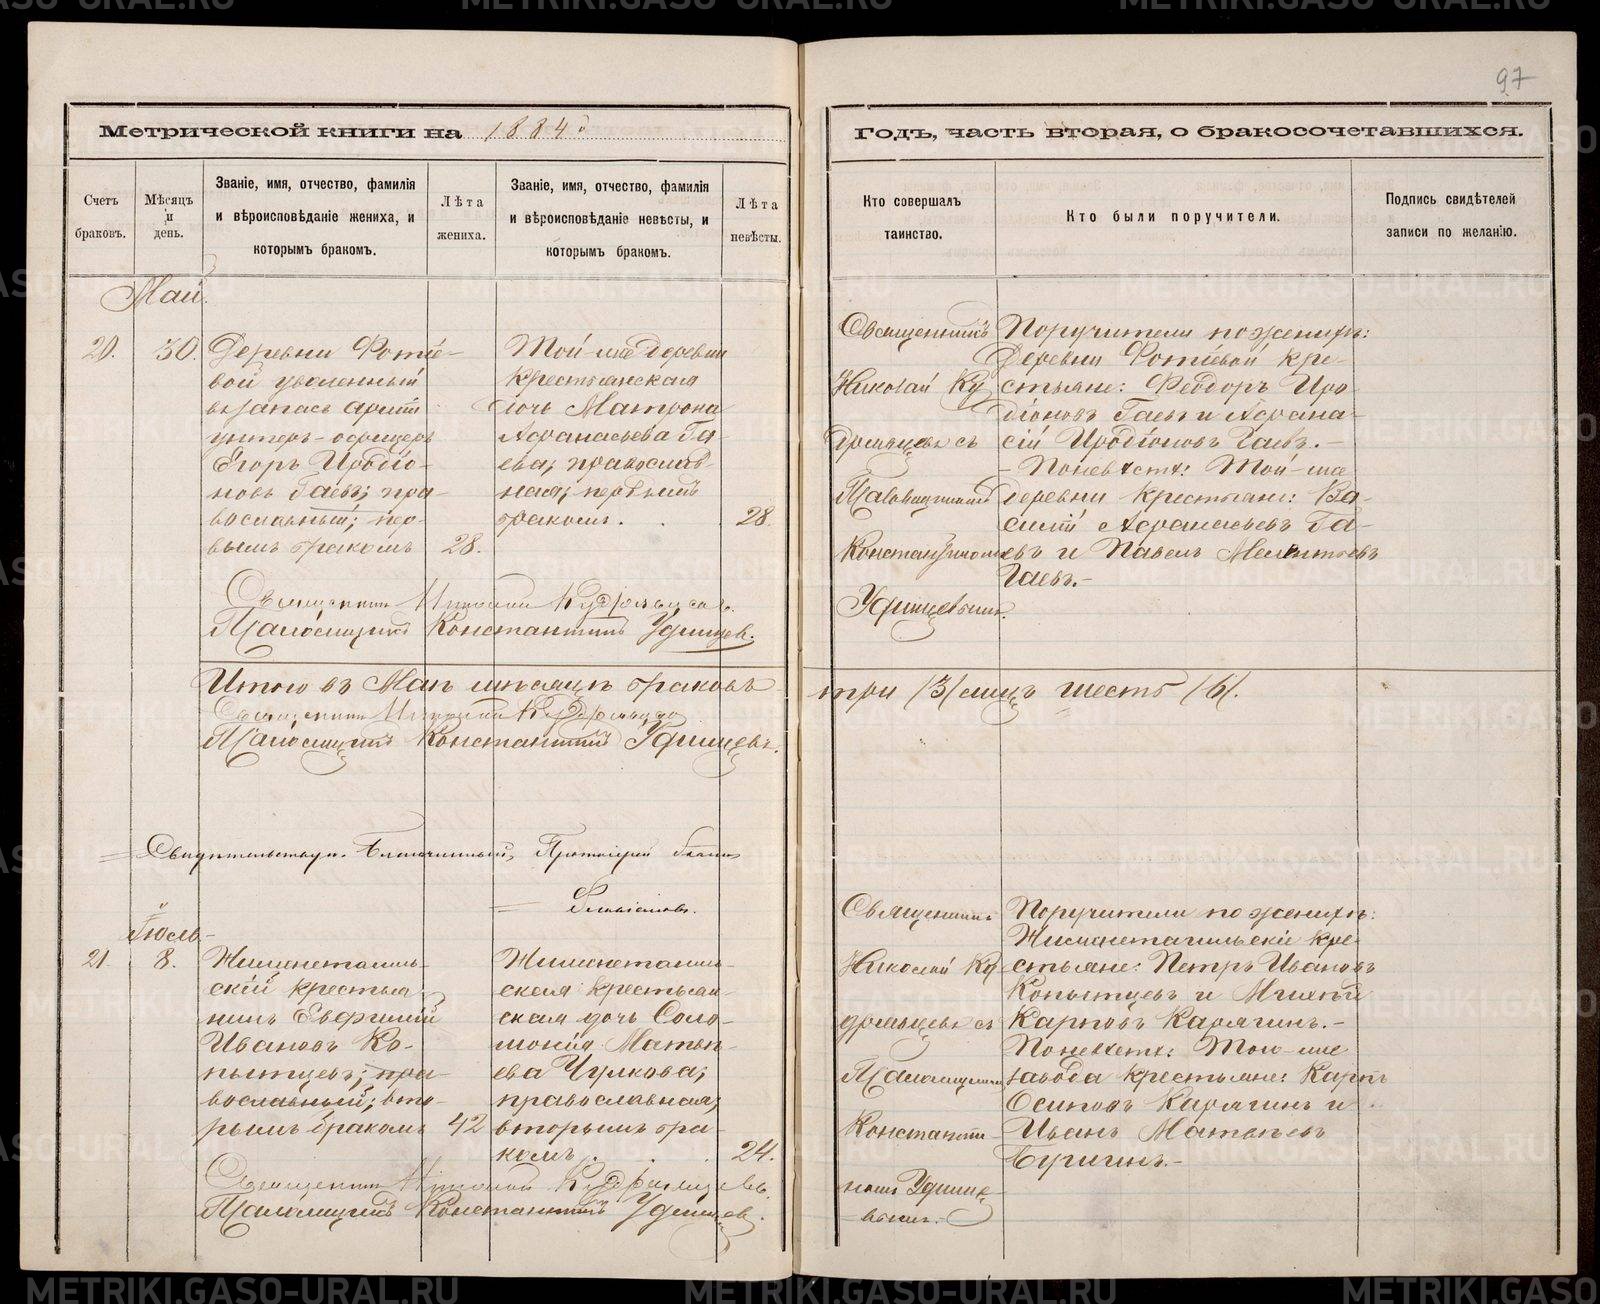 97
Метрической книги на 1884 й
Годъ, часть вторая, о бракосочетавшихся.
Счетъ браковъ.
Мѣсяцъ и день.
Званіе, имя, отчество, фамилія
и вѣроисповѣданіе жениха, и
которымъ бракомъ.
Лѣта
жениха.
Званіе, имя, отчество, фамилія
и вѣроисповѣданіе невѣсты, и
которымъ бракомъ.
Лѣта
невѣсты.
Кто совершалъ
таинство.
Кто были поручители.
Подпись свидѣтелей
записи по желанію.
Май.
20.
30.
Деревни Фотіе-
вой уволенный
въ запасъ арміи
унтеръ-офицеръ
Егоръ Иродіо-
новъ Гаевъ; пра-
вославный; пер-
вымъ бракомъ
28.
Той-же деревни
крестьянская
дочь Матрона
Афанасьева Га-
ева; православ-
ная; первымъ
бракомъ.
28.
Священникъ
Николай Ку
дрявцевъ съ
Псаломщикомъ
Константиномъ
Удинцевымъ.
Поручители по женихѣ:
Деревни Фотіевой кре-
стьяне: Феодоръ Иро
діоновъ Гаевъ и Афана-
сій Иродіоновъ Гаевъ.-
- По невѣстѣ: Той-же
деревни крестьяне: Ва-
силій Афанасьевъ Га-
евъ и Павелъ Мелентьевъ
Гаевъ.-
Священникъ Николай Кудрявцевъ.
Псаломщикъ Константинъ Удинцевъ.
Итого въ Маѣ мѣсяцѣ браковъ три /3/ лицъ шесть /6/.
Священникъ Николай Кудрявцевъ
Псаломщикъ Константинъ Удинцевъ.
Свидѣтельствуя. Благочинный, Протоіерей
Іюль.-
21.
8.
Нижнетагиль-
скій крестья
нинъ Евфимій
Ивановъ Ко-
пытцевъ; пра-
вославный; вто-
рымъ бракомъ
42
Нижнетагиль-
ская крестьян-
ская дочь Соло-
монія Матвѣ-
ева Чулкова;
православная;
вторымъ бра-
комъ.
24.
Священникъ
Николай Ку
дрявцевъ съ
Псаломщикомъ
Константи-
номъ Удинце-
вымъ.-
Поручители по женихѣ:
Нижнетагильскіе кре-
стьяне: Петръ Ивановъ
Копытцевъ и Михѣй
Карповъ Карягинъ.-
По невѣстѣ: Того-же
завода крестьяне: Карпъ
Осиповъ Карягинъ и
Иванъ Матвѣевъ
Бугинъ.-
Священникъ Николай Кудрявцевъ.
Псаломщикъ Константинъ Удинцевъ.
METRIKI.GASO-URAL.RU